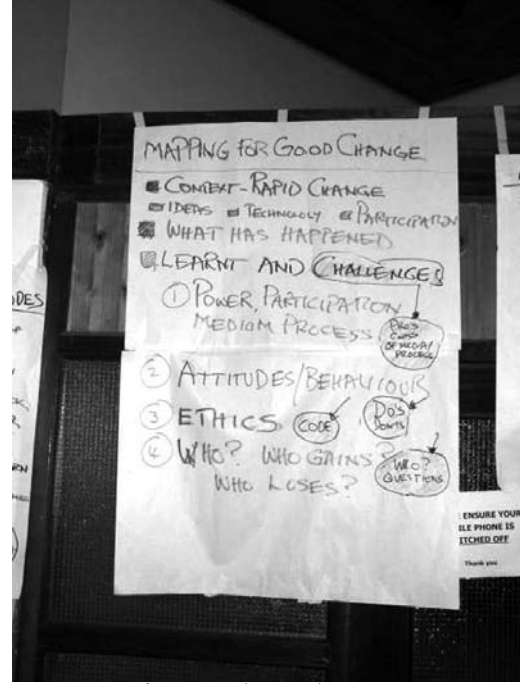 MAPPING FOR GOOD CHANGE
CONTEXT - RAPID CHANGE
IDEAS TECHNOLOGY PARTICIPATION
WHAT HAS HAPPENED
LEARNT AND CHALLENGES
1 POWER, PARTICIPATION
MEDIUM PROCESS
PROS
CONS
OF MEDIA/
PROCESS
2 ATTITUDES/BEHAVIOUR
3 ETHICS CODE DO'S
DONTS
4 WHO? WHO GAINS?
WHO LOSES?
WHO?
QUESTIONS
ENSURE YOUR
ILE PHONE IS
ITCHED OFF
Thank you
DES